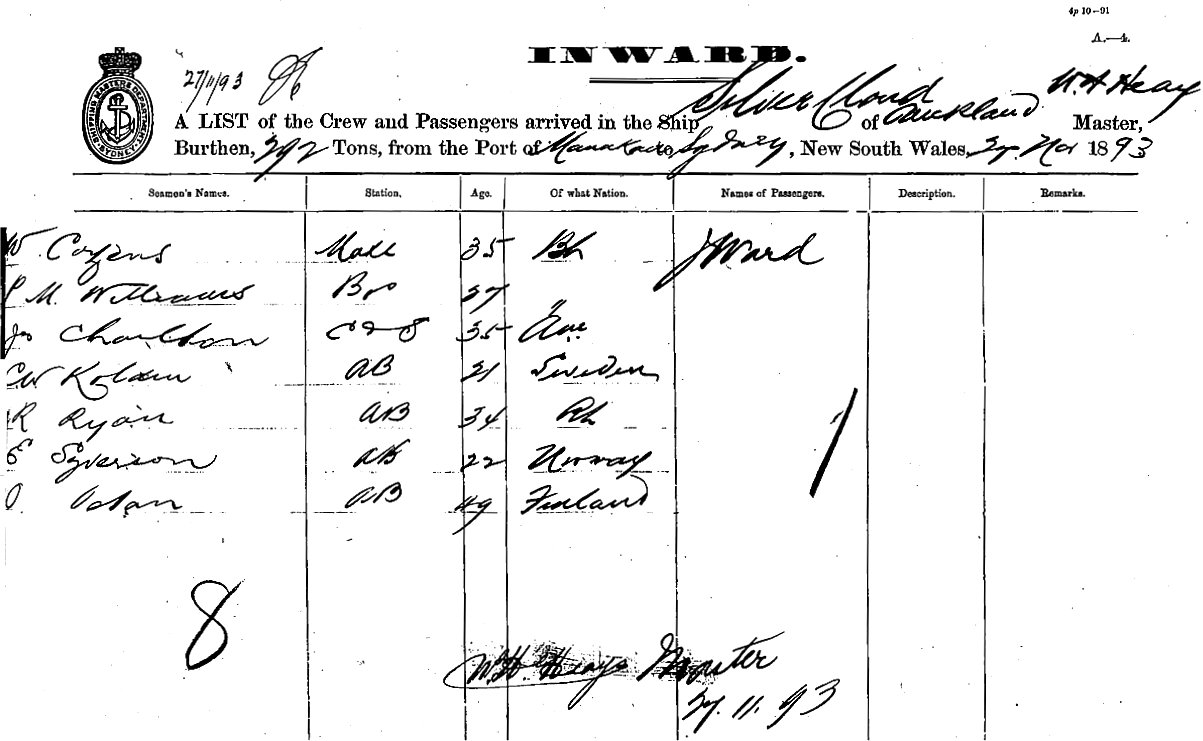 4p 10–91
A.—4.
INWARD.
27/11/93
SHIPPING MASTERS DEPARTMENT SYDNEY
A LIST of the Crew and Passengers arrived in the Ship Silver Cloud of Auckland W H Heay Master,
Burthen, 292 Tons, from the Port of to Sydney, New South Wales, 27 Nov 1893
Seamen's Names. Station. Age. Of what Nation. Names of Passengers. Description. Remarks.
W Cozens Mate 35 Bh J Ward
M. Williams Bos 27 "
Jn Charlton C & S 35
CW Kolden AB 21 Sweden
R Ryan AB 34 Bh
E Syverson AB 22 Norway
O AB 49 Finland
1
8
W. H. Heays Master
27. 11. 93